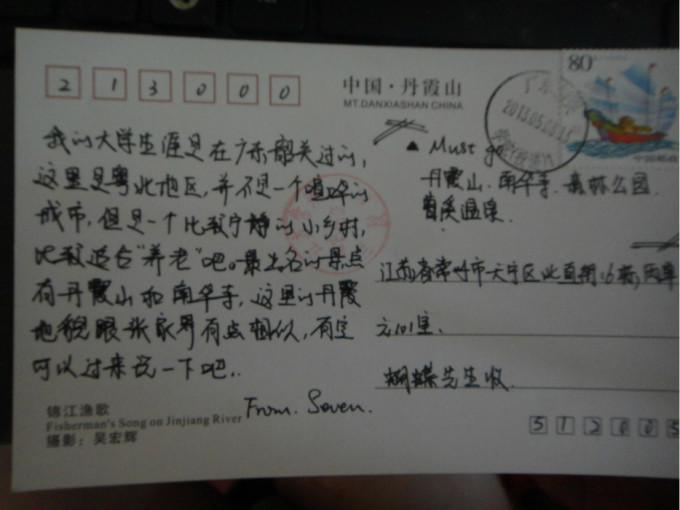 213000
中国·丹霞山
MT.DANXIASHAN CHINA
80
2013.05.03
中国邮政
我的大学生涯是在广东韶关过的，
这里是粤北地区，并不是一个喧哗的
城市，但是一个比较宁静的小乡村，
比较适合“养老”吧。最出名的景点
有丹霞山和南华寺，这里的丹霞
地貌跟张家界有点相似，有空
可以过来玩一下吧..
From. Seven.
▲ Must go
丹霞山. 南华寺. 森林公园.
曹溪温泉.
江苏省常州市天宁区北直街
元101室.
蝴蝶先生收.
锦江渔歌
Fisherman's Song on Jinjiang River
摄影：吴宏辉
512005